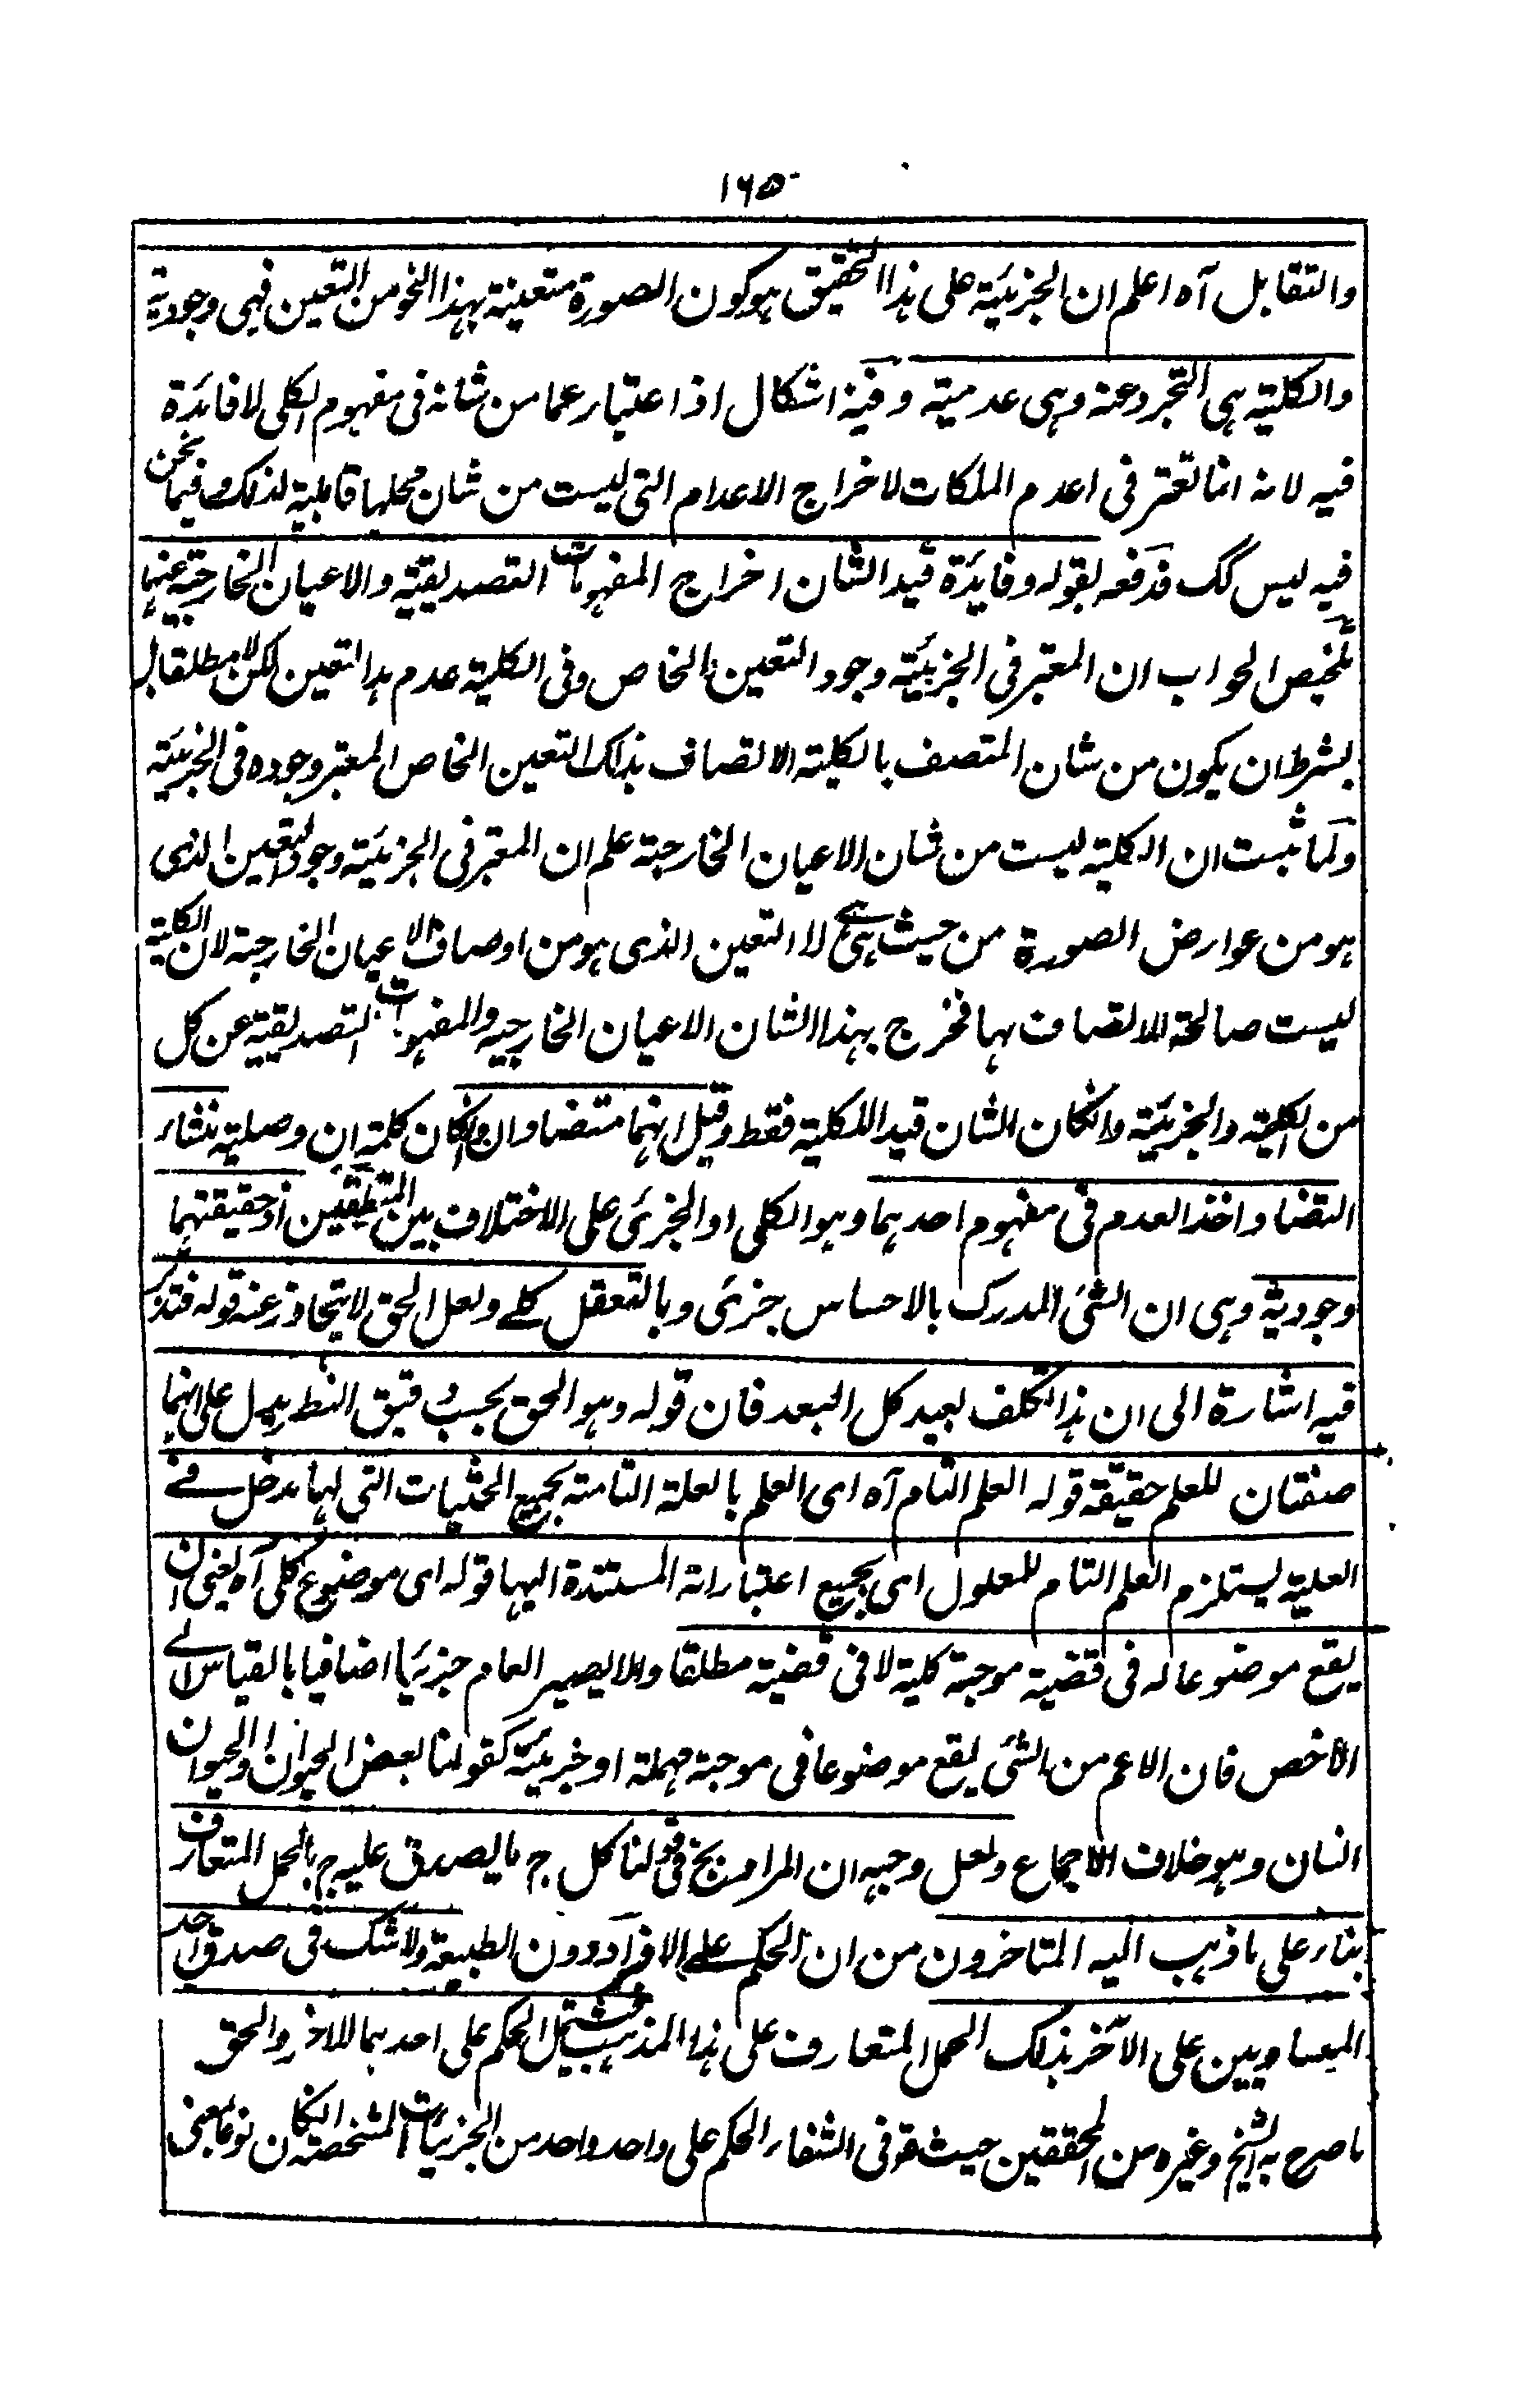 ١٦٥
والتقابل آه اعلم ان الجزئية على هذا التحقيق هو كون الصورة متعينة بهذا النحو من التعين فهى وجودية
والكلية هى التجرد عنه وهى عدمية وفيه اشكال اذ اعتبار عما من شانه فى مفهوم الكلى لا فائدة
فيه لانه انما تعتبر فى اعدام الملكات لاخراج الاعدام التى ليست من شان محلها قابلية لذلك وفيما نحن
فيه ليس كك فدفعه بقوله وفايدة قيد الشان اخراج المفهومات التصديقية والاعيان الخارجية عنهما
تلخيص الجواب ان المعتبر فى الجزئية وجود التعين الخاص وفى الكلية عدم هذا التعين لكن لا مطلقا بل
بشرط ان يكون من شان المتصف بالكلية الاتصاف بذلك التعين الخاص المعتبر وجوده فى الجزئية
ولما ثبت ان الكلية ليست من شان الاعيان الخارجية علم ان المعتبر فى الجزئية وجود التعين الذى
هو من عوارض الصورة من حيث هى هى لا التعين الذى هو من اوصاف الاعيان الخارجية لان الكلية
ليست صالحة للاتصاف بها فخرج بهذا الشان الاعيان الخارجيه والمفهومات التصديقية عن كل
من الكلية والجزئية وانكان الشان قيد اللكلية فقط وقيل انهما متضادان وانكان كلمة ان وصلية منشاء
التضاد اخذ العدم فى مفهوم احدهما وهو الكلى او الجزئى على الاختلاف بين المنطقيين اذ حقيقتهما
وجودية وهى ان الشئ المدرك بالاحساس جزئى وبالتعقل كلے ولعل الحق لا يتجاوز عنه قوله فتدبر
فيه اشارة الى ان هذا تكلف بعيد كل البعد فان قوله وهو الحق بحسب دقيق النظر يدل على انهما
صفتان للعلم حقيقة قوله العلم التام آه اى العلم بالعلة التامة بجميع الحيثيات التى لها مدخل فے
العلية يستلزم العلم التام للمعلول اى بجميع اعتباراته المستندة اليها قوله اى موضوع كلى آه يعنى ان
يقع موضوعا له فى قضية موجبة كلية لا فى قضية مطلقا والا يصير العام جزئيا اضافيا بالقياس الے
الاخص فان الاعم من الشئ يقع موضوعا فى موجبة مهملة او جزئية كقولنا بعض الحيوان او الحيوان
انسان وهو خلاف الاجماع ولعل وجهه ان المراد من ج فى قولنا كل ج ما يصدق عليه ج بالحمل المتعارف
بناء على ما ذهب اليه المتاخرون من ان الحكم علے الافراد دون الطبيعة ولا شك فى صدق احد
المتساويين على الآخر بذلك الحمل المتعارف على هذا المذهب فيشتمل الحكم على احدهما للاخر والحق
ما صرح به الشيخ وغيره من المحققين حيث قو فى الشفاء الحكم على واحد واحد من الجزئيات المشخصة انكان نوعا بمعنى